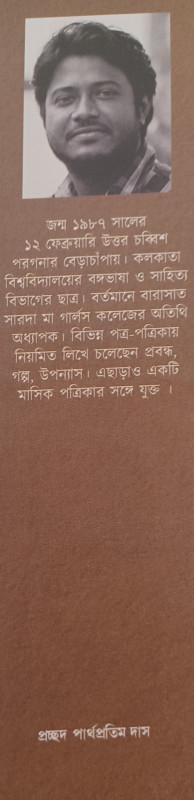 জন্ম ১৯৮৭ সালের
১২ ফেব্রুয়ারি উত্তর চব্বিশ
পরগনার বেড়াচাঁপায়। কলকাতা
বিশ্ববিদ্যালয়ের বঙ্গভাষা ও সাহিত্য
বিভাগের ছাত্র। বর্তমানে বারাসাত
সারদা মা গার্লস কলেজের অতিথি
অধ্যাপক। বিভিন্ন পত্র-পত্রিকায়
নিয়মিত লিখে চলেছেন প্রবন্ধ,
গল্প, উপন্যাস। এছাড়াও একটি
মাসিক পত্রিকার সঙ্গে যুক্ত ।
প্রচ্ছদ পার্থপ্রতিম দাস